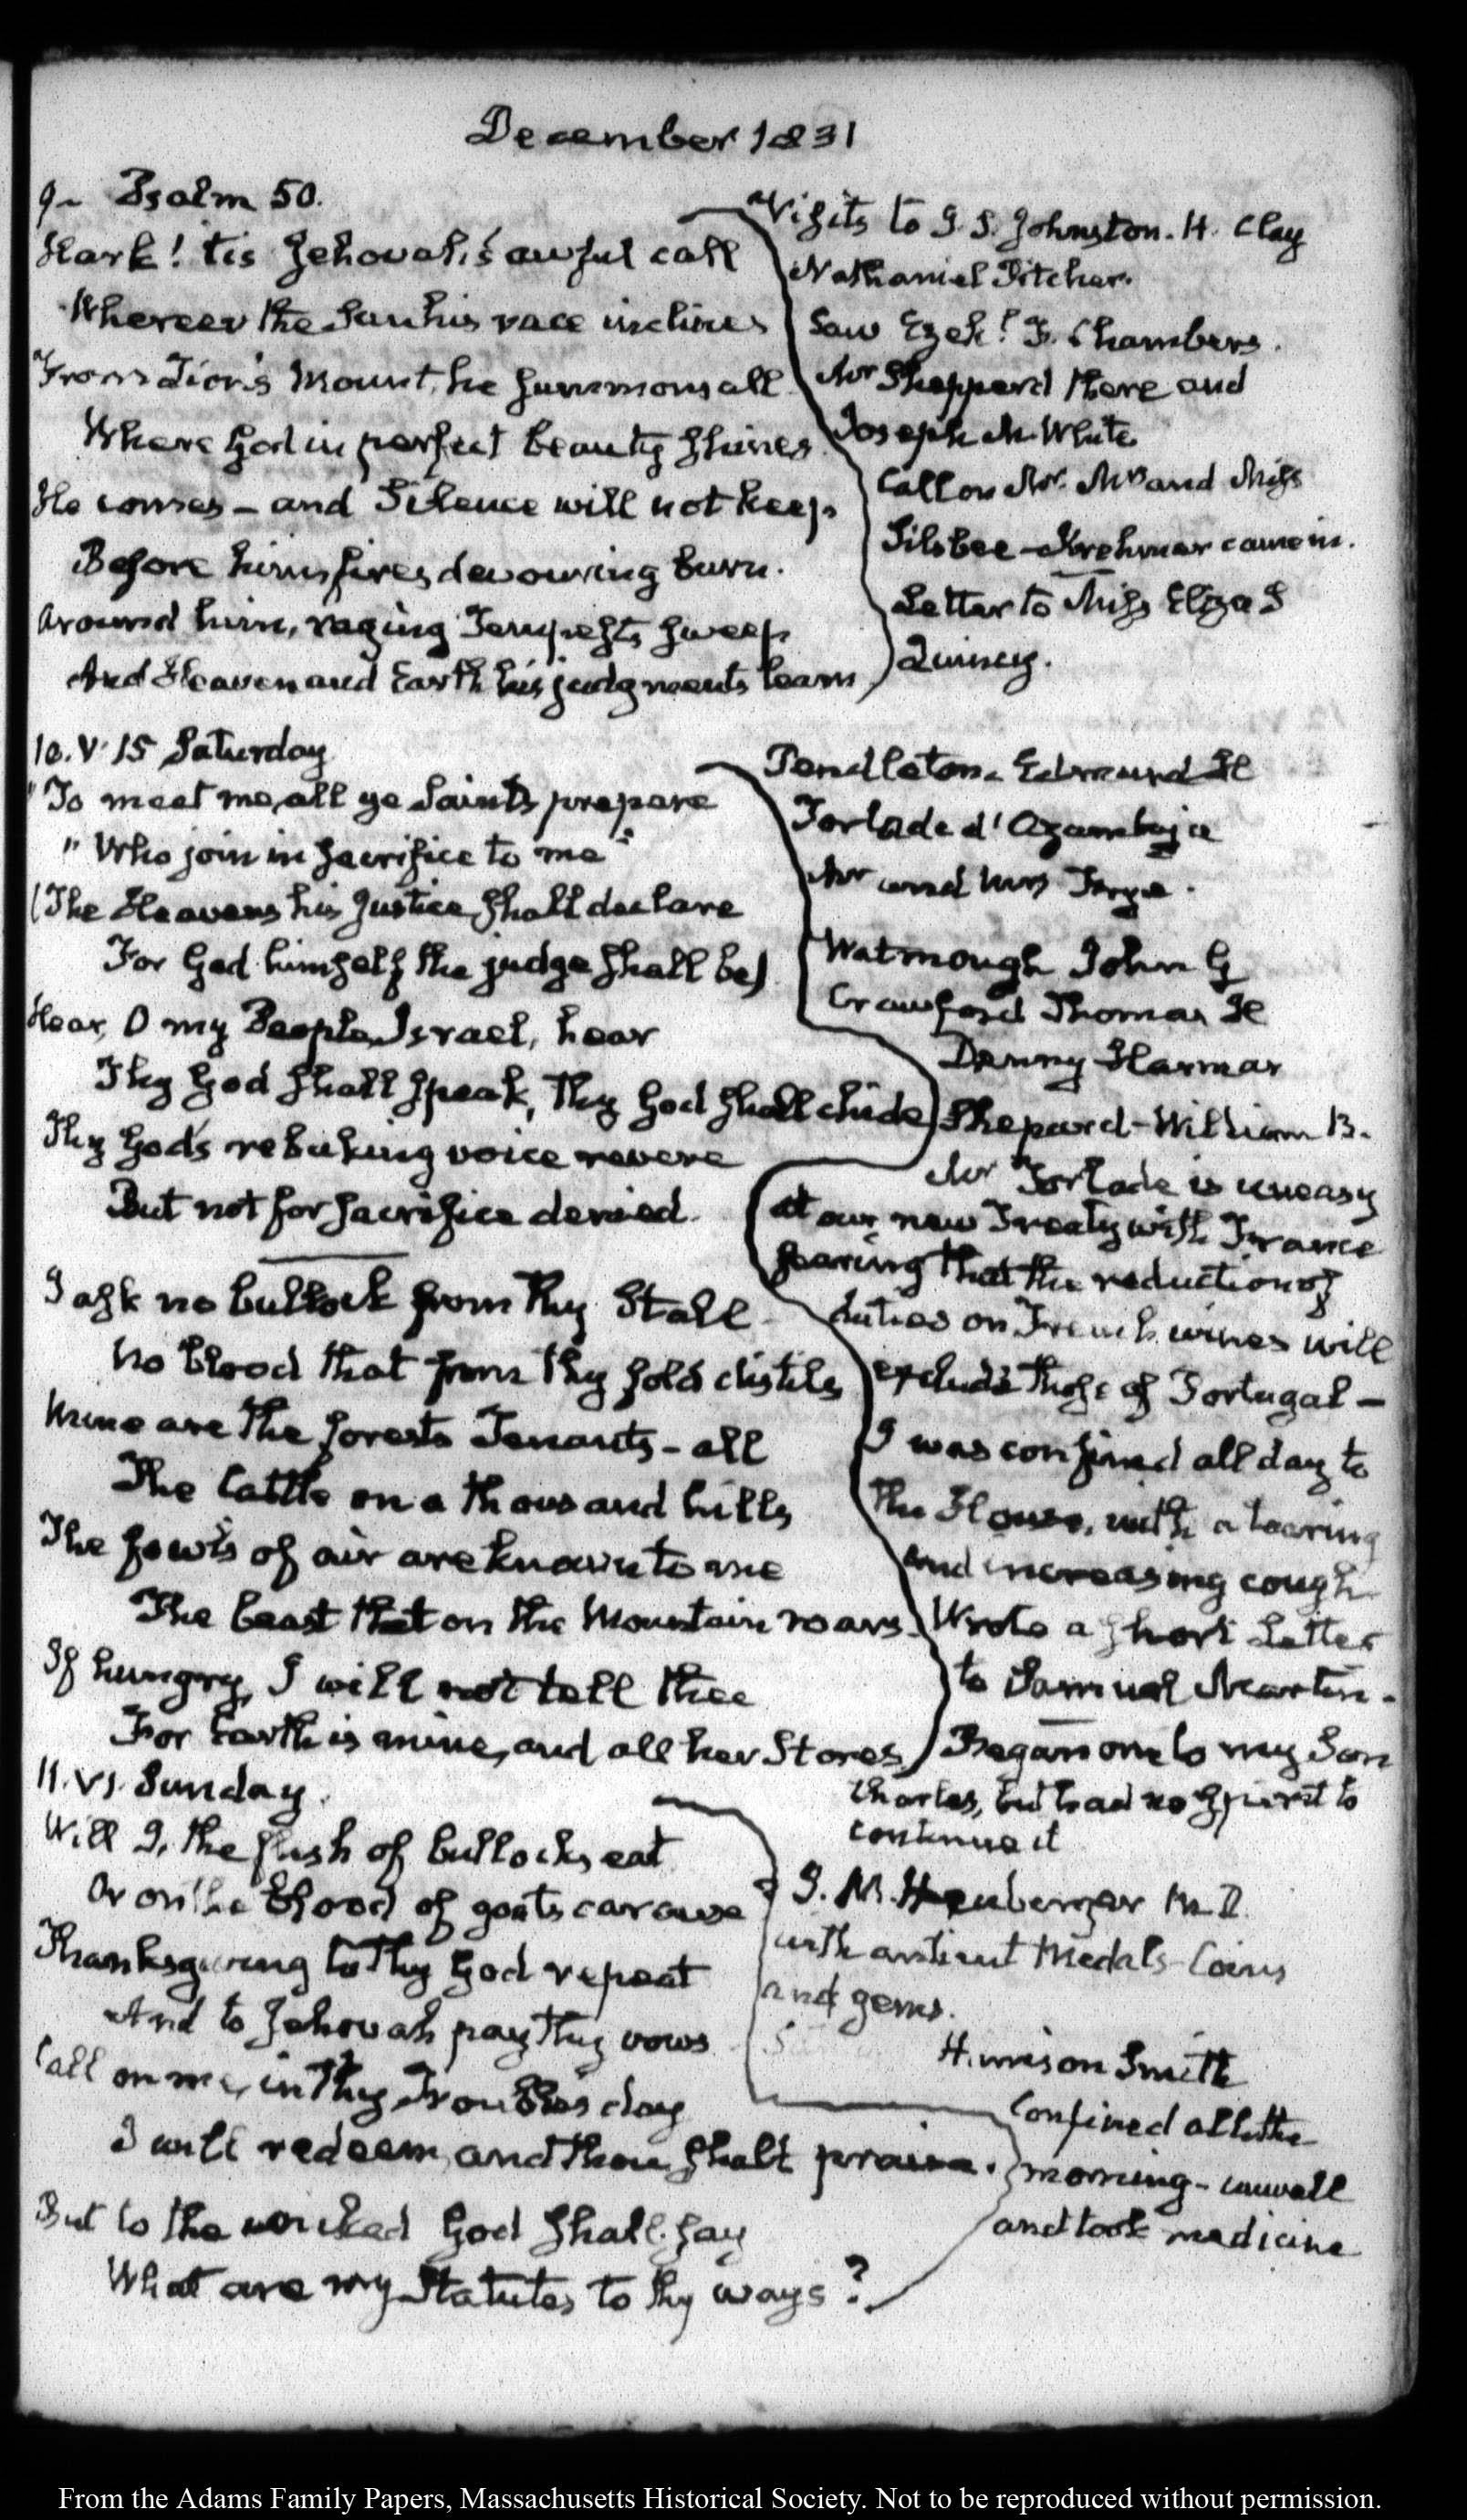 December 1831
9. Psalm 50.
Hark! tis Jehovah's awful call
Whereer the Sun his race inclines
From Zion's Mount, he summons all
Where God in perfect beauty shines
He comes – and Silence will not keep
Before him fires devouring burn.
Around him, raging Tempests sweep
And Heaven and Earth his judgments learn
Visits to J. S. Johnston. H. Clay
Nathaniel Pitcher.
Saw Ezekl. F. Chambers.
Mr Shepperd there and
Joseph M. White
Call on Mr. Mrs and Miss
Silsbee – Krehmer came in.
Letter to Miss Eliza S
Quincy.
10. V. 15 Saturday
"To meet me, all ye Saints prepare
"Who join in sacrifice to me"
(The Heavens his Justice shall declare
For God himself the judge shall be)
Hear, O my People, Israel, hear
Thy God shall speak, thy God shall chide
Thy God's rebuking voice revere
But not for sacrifice denied.
I ask no bullock from thy Stall
No blood that from thy fold distils
Mine are the forests Tenants – all
The Cattle on a thousand hills
The fowls of air are known to me
The beast that on the Mountain roars.
If hungry, I will not tell thee
For Earth is mine, and all her Stores
Pendleton. Edmund H
Torlade d'Azambuja
Mr and Mrs
Watmough John G
Crawford Thomas H
Denny Harmar
Shepard – William B.
Mr Torlade is uneasy
at our new Treaty with France
fearing that the reduction of
duties on French wines will
exclude those of Portugal –
I was confined all day to
the House, with a tearing
and increasing cough
Wrote a short Letter
to Samuel Martin.
Began one to my Son
Charles, but had no spirit to
continue it
11. VI. Sunday.
Will I, the flesh of bullocks eat
Or on the blood of goats carouse
Thanksgiving to thy God repeat
And to Jehovah pay thy vows
Call on me, in thy Troubles day
I will redeem, and thou shalt praise.
But to the wicked God shall say
What are my Statutes to thy ways?
J. M. M.D.
with antient Medals – Coins
and gems.
Harrison Smith
Confined all the
morning – unwell
and took medicine
From the Adams Family Papers, Massachusetts Historical Society. Not to be reproduced without permission.